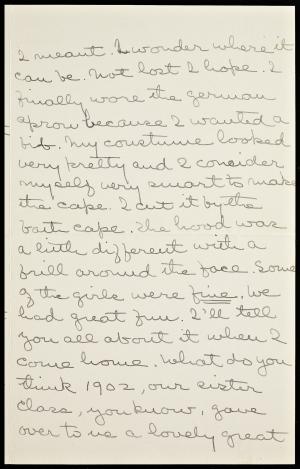 I meant. I wonder where it
can be. Not lost I hope. I
finally wore the german
apron because I wanted a
bib. My constume looked
very pretty and I consider
myself very smart to make
the cape. I cut it by the
bath cape. The hood was
a little different with a
frill around the face. Some
of the girls were fine. We
had great fun. I'll tell
you all about it when I
come home. What do you
think 1902, our sister
class, you know, gave
over to us a lovely great